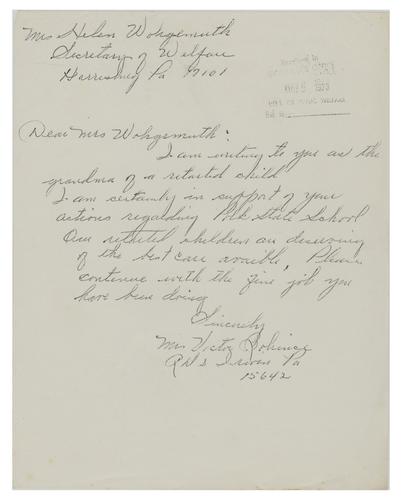 Mrs Helen Wohgemuth
Secretary of Welfare
Harrisburg Pa 17101
Dear Mrs Wohgemuth:
I am writing to you as the
grandma of a retarted child
I am certainly in support of your
actions regarding Polk State School
Our retarted children are deserving
of the best care avaible, Please
continue with the fine job you
have been doing
Sincerely
Mrs Victor
Irwin Pa
15642